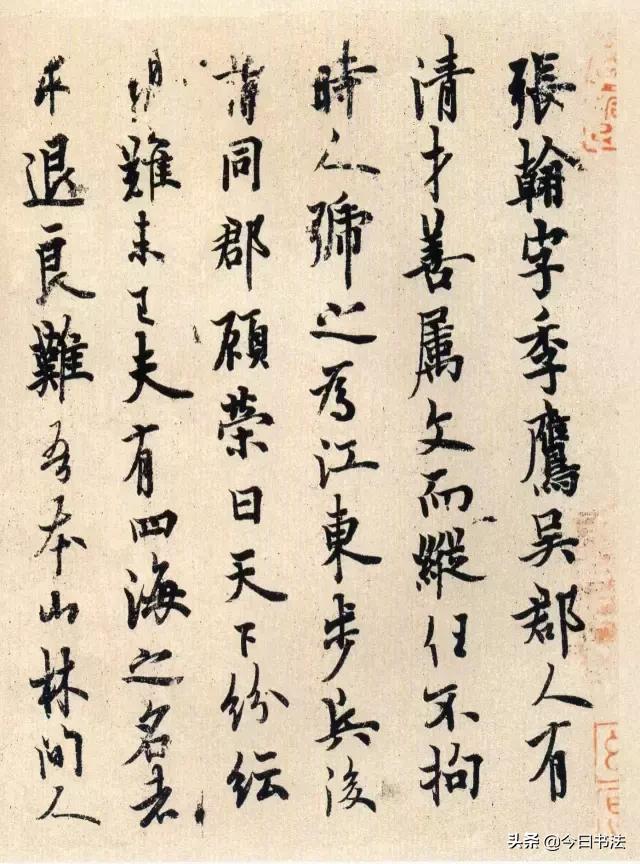 張翰字季鷹吳郡人有
清才善屬文而縱任不拘
時人號之為江東步兵後
謂同郡顧榮曰天下紛紜
難未已夫有四海之名者
求退良難吾本山林間人
头条 @今日书法